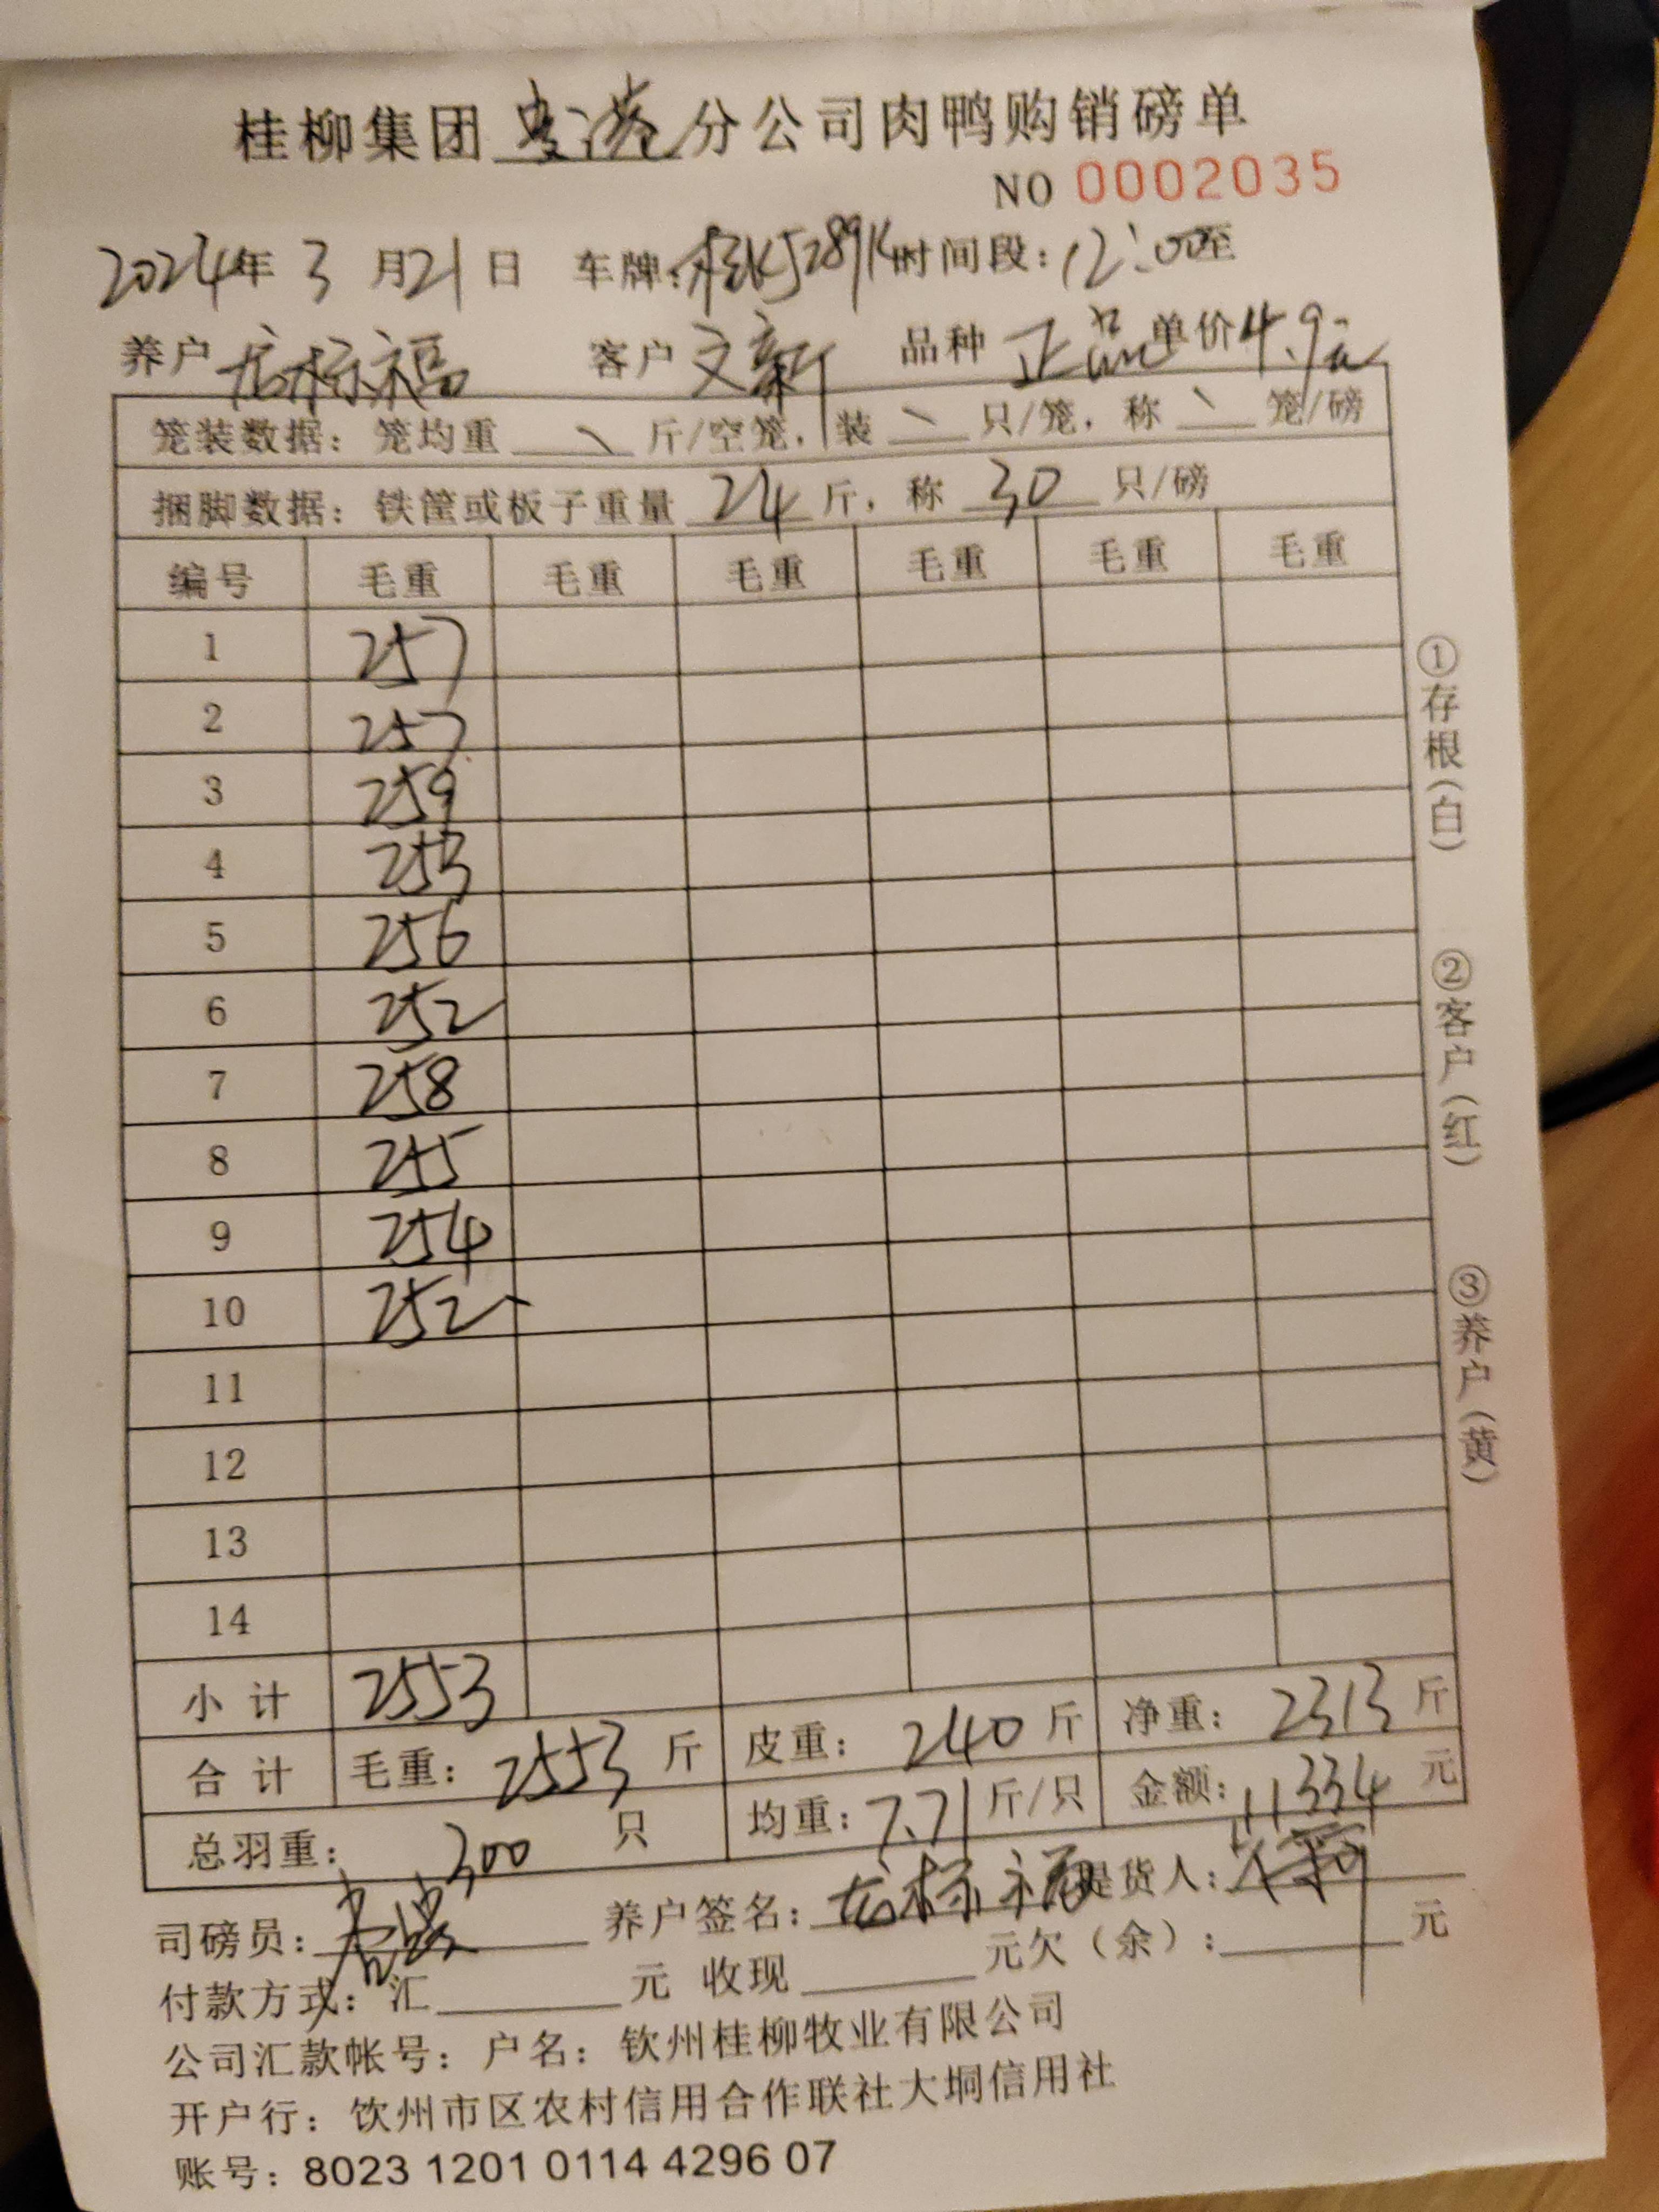 桂柳集团贵港分公司肉鸭购销磅单
NO 0002035
2024年 3月21日 车牌:桂KJ289K时间段:12:00至
养户 龙标福 客户 文新 品种 正品 单价4.9元
笼装数据: 笼均重 \ 斤/空笼, 装 \ 只/笼, 称 \ 笼/磅
捆脚数据: 铁筐或板子重量 24 斤, 称 30 只/磅
编号 毛重 毛重 毛重 毛重 毛重 毛重
1 257
2 257
3 259
4 253
5 256
6 252
7 258
8 255
9 254
10 252
11
12
13
14
小计 2553
合计 毛重: 2553 斤 皮重: 240 斤 净重: 2313 斤
总羽重: 300 只 均重: 7.71 斤/只 金额: 11334 元
司磅员: 养户签名: 龙标福 提货人:
付款方式: 汇 元 收现 元欠(余): 元
公司汇款帐号: 户名: 钦州桂柳牧业有限公司
开户行: 饮州市区农村信用合作联社大垌信用社
账号: 8023 1201 0114 4296 07
①存根(白)
②客户(红)
③养户(黄)